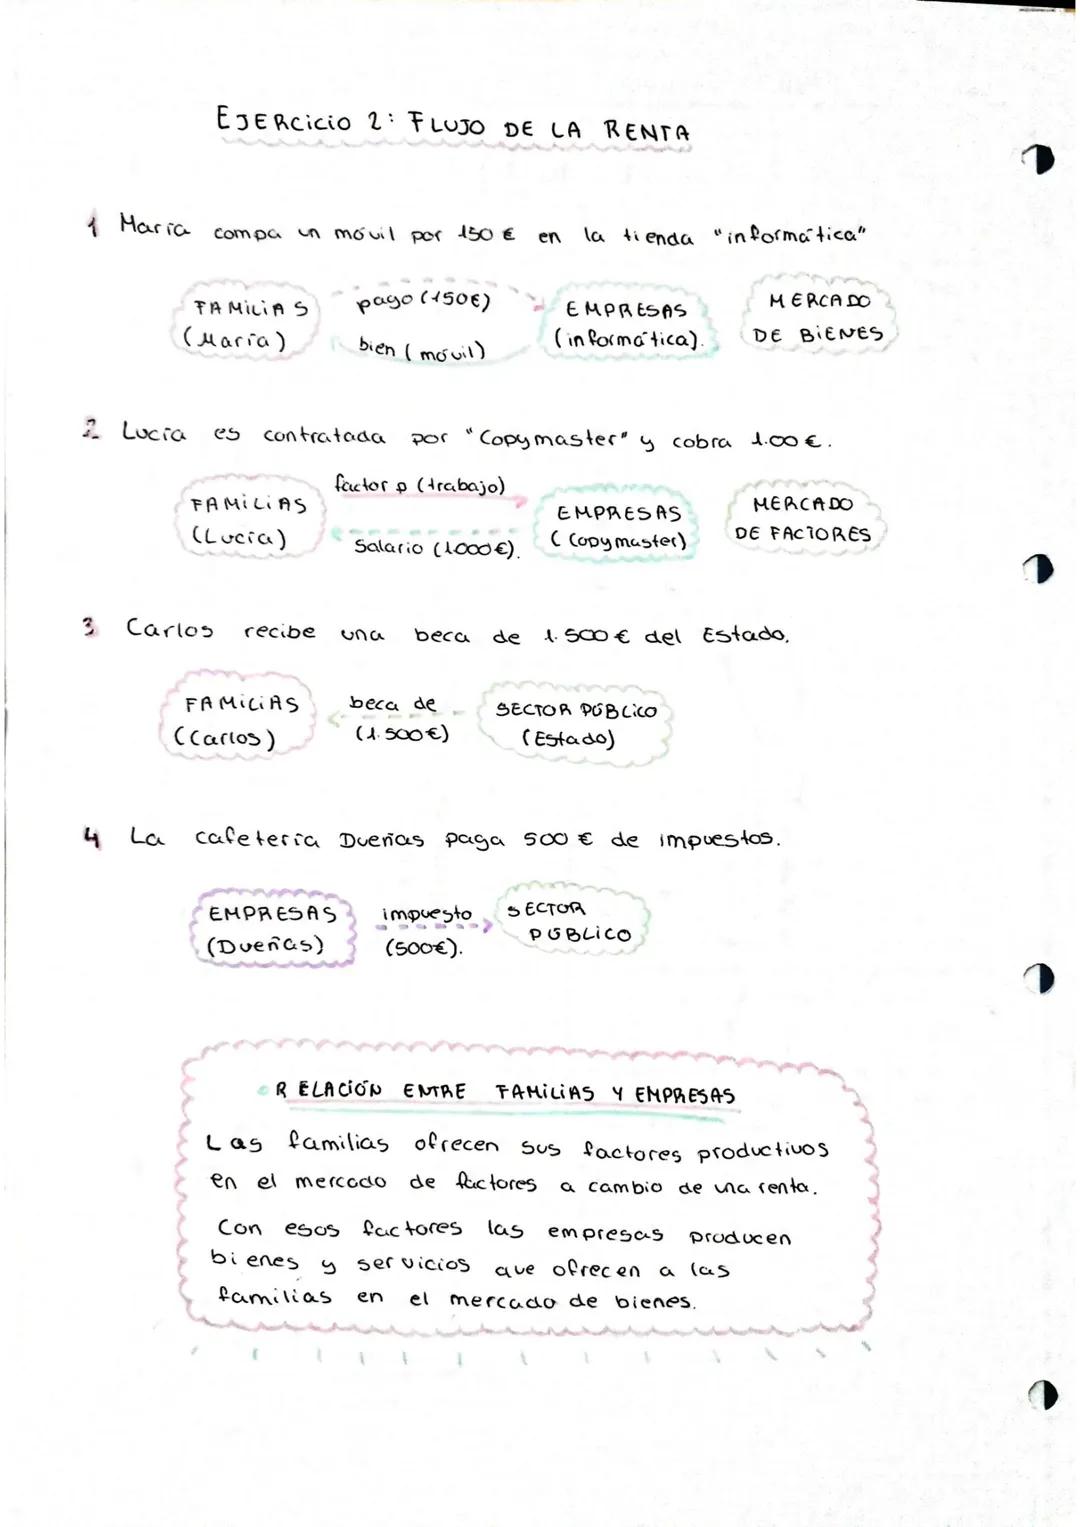 EJERCICIO 2: FLUJO DE LA RENTA
1 María compa un móvil por 150 € en la tienda "informática"
FAMILIAS
(María)
pago (150€)
bien (móvil)
EMPRESAS
(informática).
MERCADO
DE BIENES
2 Lucía es contratada por "Copymaster" y cobra 1.00 €.
FAMILIAS
(Lucía)
factor p (trabajo)
Salario (1000€).
EMPRESAS
(Copymaster)
MERCADO
DE FACTORES
3 Carlos recibe una beca de 1.500 € del Estado.
FAMILIAS
(Carlos)
beca de
(1.500€)
SECTOR PÚBLICO
(Estado)
4 La cafetería Dueñas paga 500 € de impuestos.
EMPRESAS
(Dueñas)
impuesto
(500€).
SECTOR
PÚBLICO
RELACIÓN ENTRE FAMILIAS Y EMPRESAS
Las familias ofrecen sus factores productivos
en el mercado de factores a cambio de una renta.
Con esos factores las empresas producen
bienes y servicios que ofrecen a las
familias en el mercado de bienes.